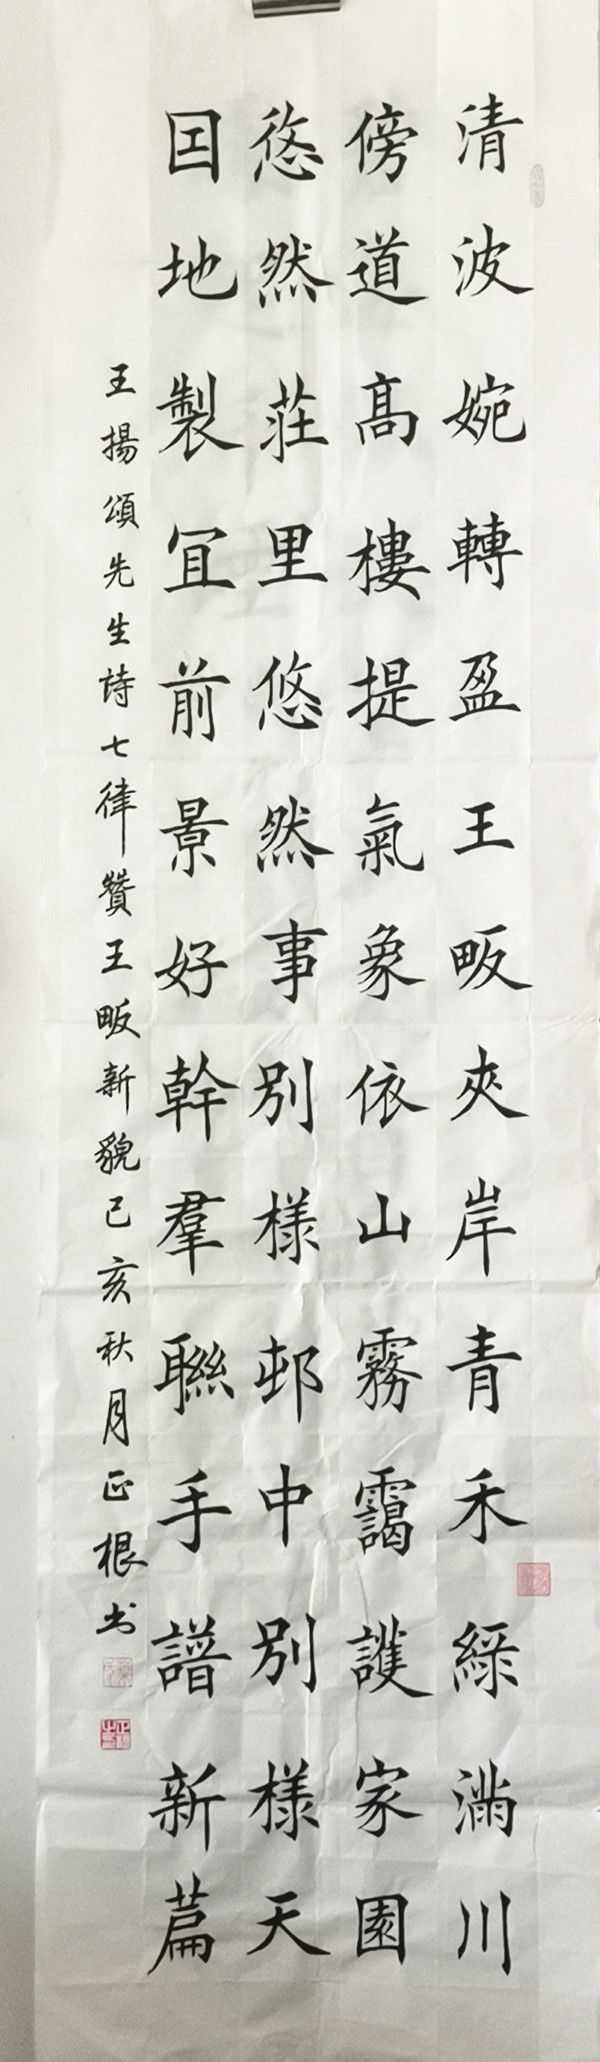 清波婉轉盈王畈夾岸青禾綠滿川
傍道高樓提氣象依山霧靄護家園
悠然莊里悠然事別樣邨中別樣天
因地製宜前景好幹羣聯手譜新篇
王揚頌先生詩七律贊王畈新貌己亥秋月正根书